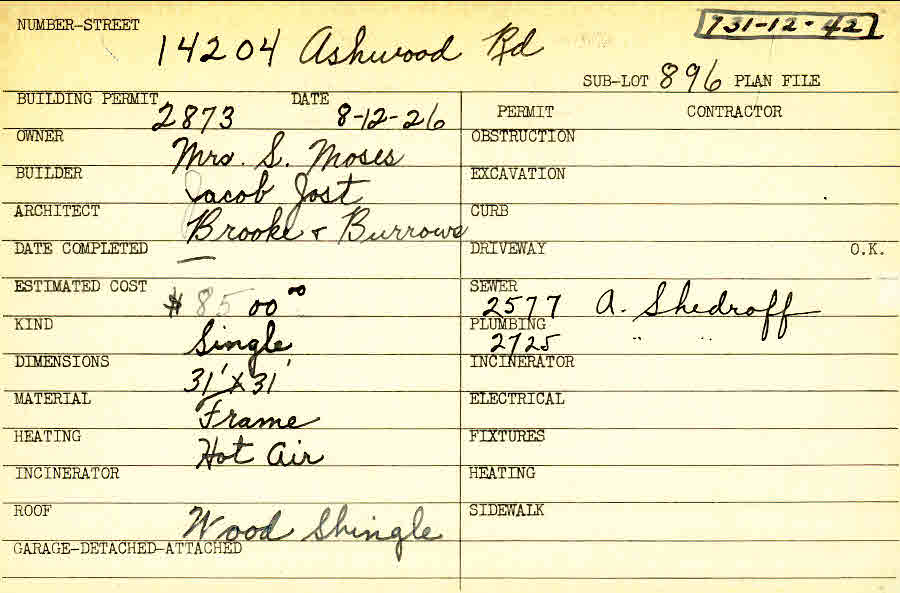 NUMBER-STREET 14204 Ashwood Rd 731-12-42
SUB-LOT 896 PLAN FILE
BUILDING PERMIT 2873 DATE 8-12-26
OWNER Mrs. S. Moses
BUILDER Jacob Jost
ARCHITECT Brooke & Burrows
DATE COMPLETED —
ESTIMATED COST $8500.00
KIND Single
DIMENSIONS 31' X 31'
MATERIAL Frame
HEATING Hot Air
INCINERATOR
ROOF Wood Shingle
GARAGE-DETACHED-ATTACHED
PERMIT CONTRACTOR
OBSTRUCTION
EXCAVATION
CURB
DRIVEWAY O.K.
SEWER 2577 A. Shedroff
PLUMBING 2725 " "
INCINERATOR
ELECTRICAL
FIXTURES
HEATING
SIDEWALK